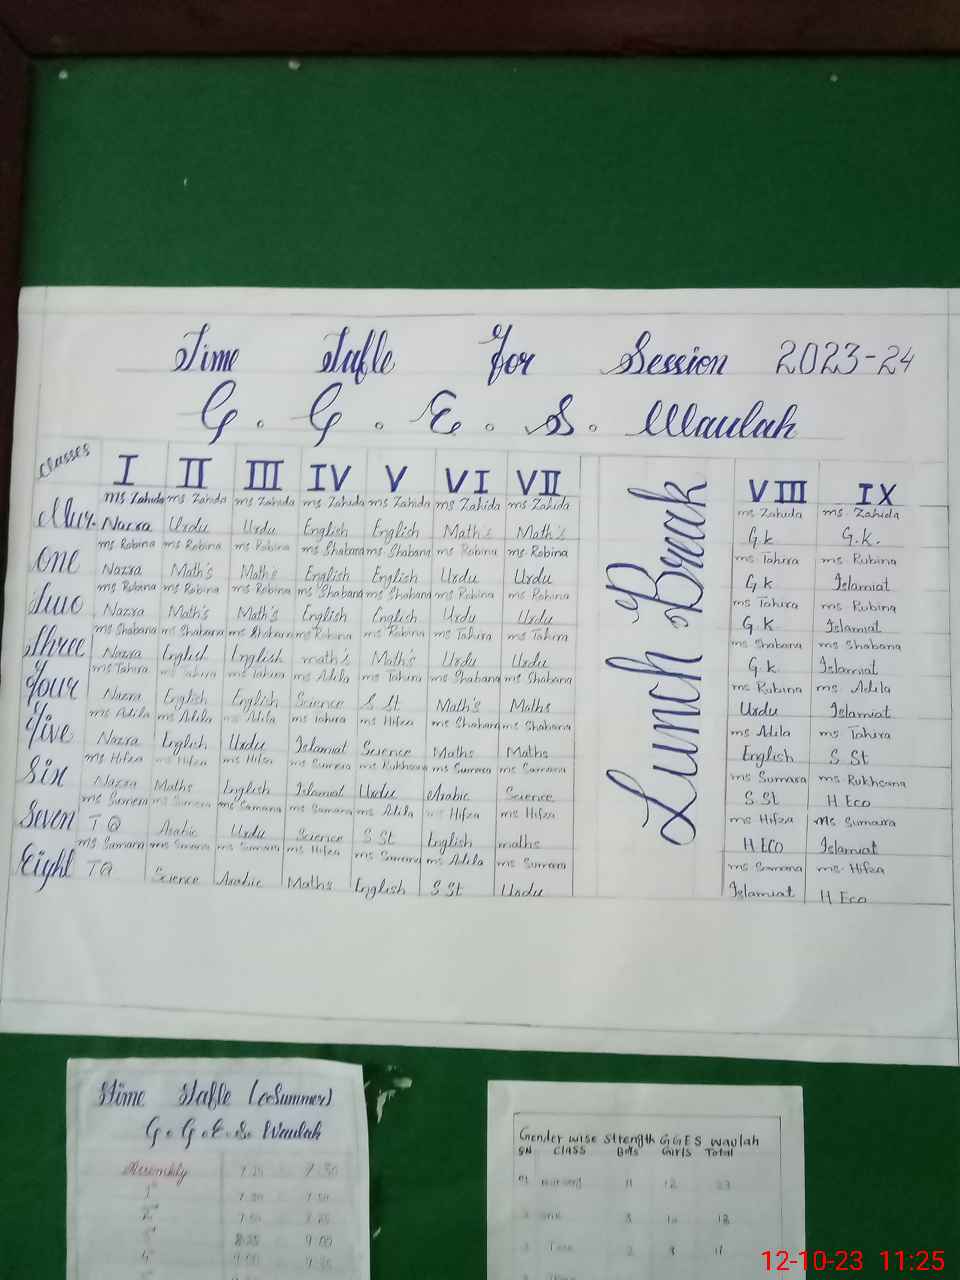 Time Table For Session 2023-24
G. G. E. S. Waulah
Classes I II III IV V VI VII Lunch Break VIII IX
Nur. ms Zahida ms Zahida ms Zahida ms Zahida ms Zahida ms Zahida ms Zahida ms Zahida ms Zahida
Nazra Urdu Urdu English English Math's Math's G k G.K.
One ms Robina ms Robina ms Robina ms Shabana ms Shabana ms Robina ms Robina ms Tahira ms Rubina
Nazra Math's Math's English English Urdu Urdu G k Islamiat
Two ms Robina ms Robina ms Robina ms Shabana ms Shabana ms Robina ms Robina ms Tahira ms Rubina
Nazra Math's Math's English English Urdu Urdu G K Islamiat
Three ms Shabana ms Shabana ms Shabana ms Robina ms Robina ms Tahira ms Tahira ms Shabana ms Shabana
Nazra English English math's Math's Urdu Urdu G k Islamiat
Four ms Tahira ms Tahira ms Tahira ms Adila ms Tahira ms Shabana ms Shabana ms Rubina ms Adila
Nazra English English Science S St Math's Maths Urdu Islamiat
Five ms Adila ms Adila ms Adila ms Tahira ms Hifza ms Shabana ms Shabana ms Adila ms Tahira
Nazra English Urdu Islamiat Science Maths Maths English S St
Six ms Hifza ms Hifza ms Hifza ms Sumera ms Rukhsana ms Sumara ms Samara ms Sumara ms Rukhsana
Nazra Maths English Islamiat Urdu Arabic Science S St H Eco
Seven ms Sumera ms Sumera ms Samana ms Samara ms Adila ms Hifza ms Hifza ms Hifza Ms Sumara
T Q Arabic Urdu Science S St English maths H Eco Islamiat
Eight ms Samara ms Smara ms Sumara ms Hifza ms Samara ms Adila ms Sumara ms Samana ms Hifza
TQ Science Arabic Maths English S St Urdu Islamiat H Eco
Time Table (Summer)
G. G. E. S. Waulah
Assembly 7.20 7.30
1st 7.30
2nd 8.25
3rd 8:25 9:00
4th 9:00 9:35
Gender wise Strength G G E S Waulah
SN CLASS BOYS Girls Total
01 Nursery 11 12 23
2 one 8 10 18
3 Two
12-10-23 11:25